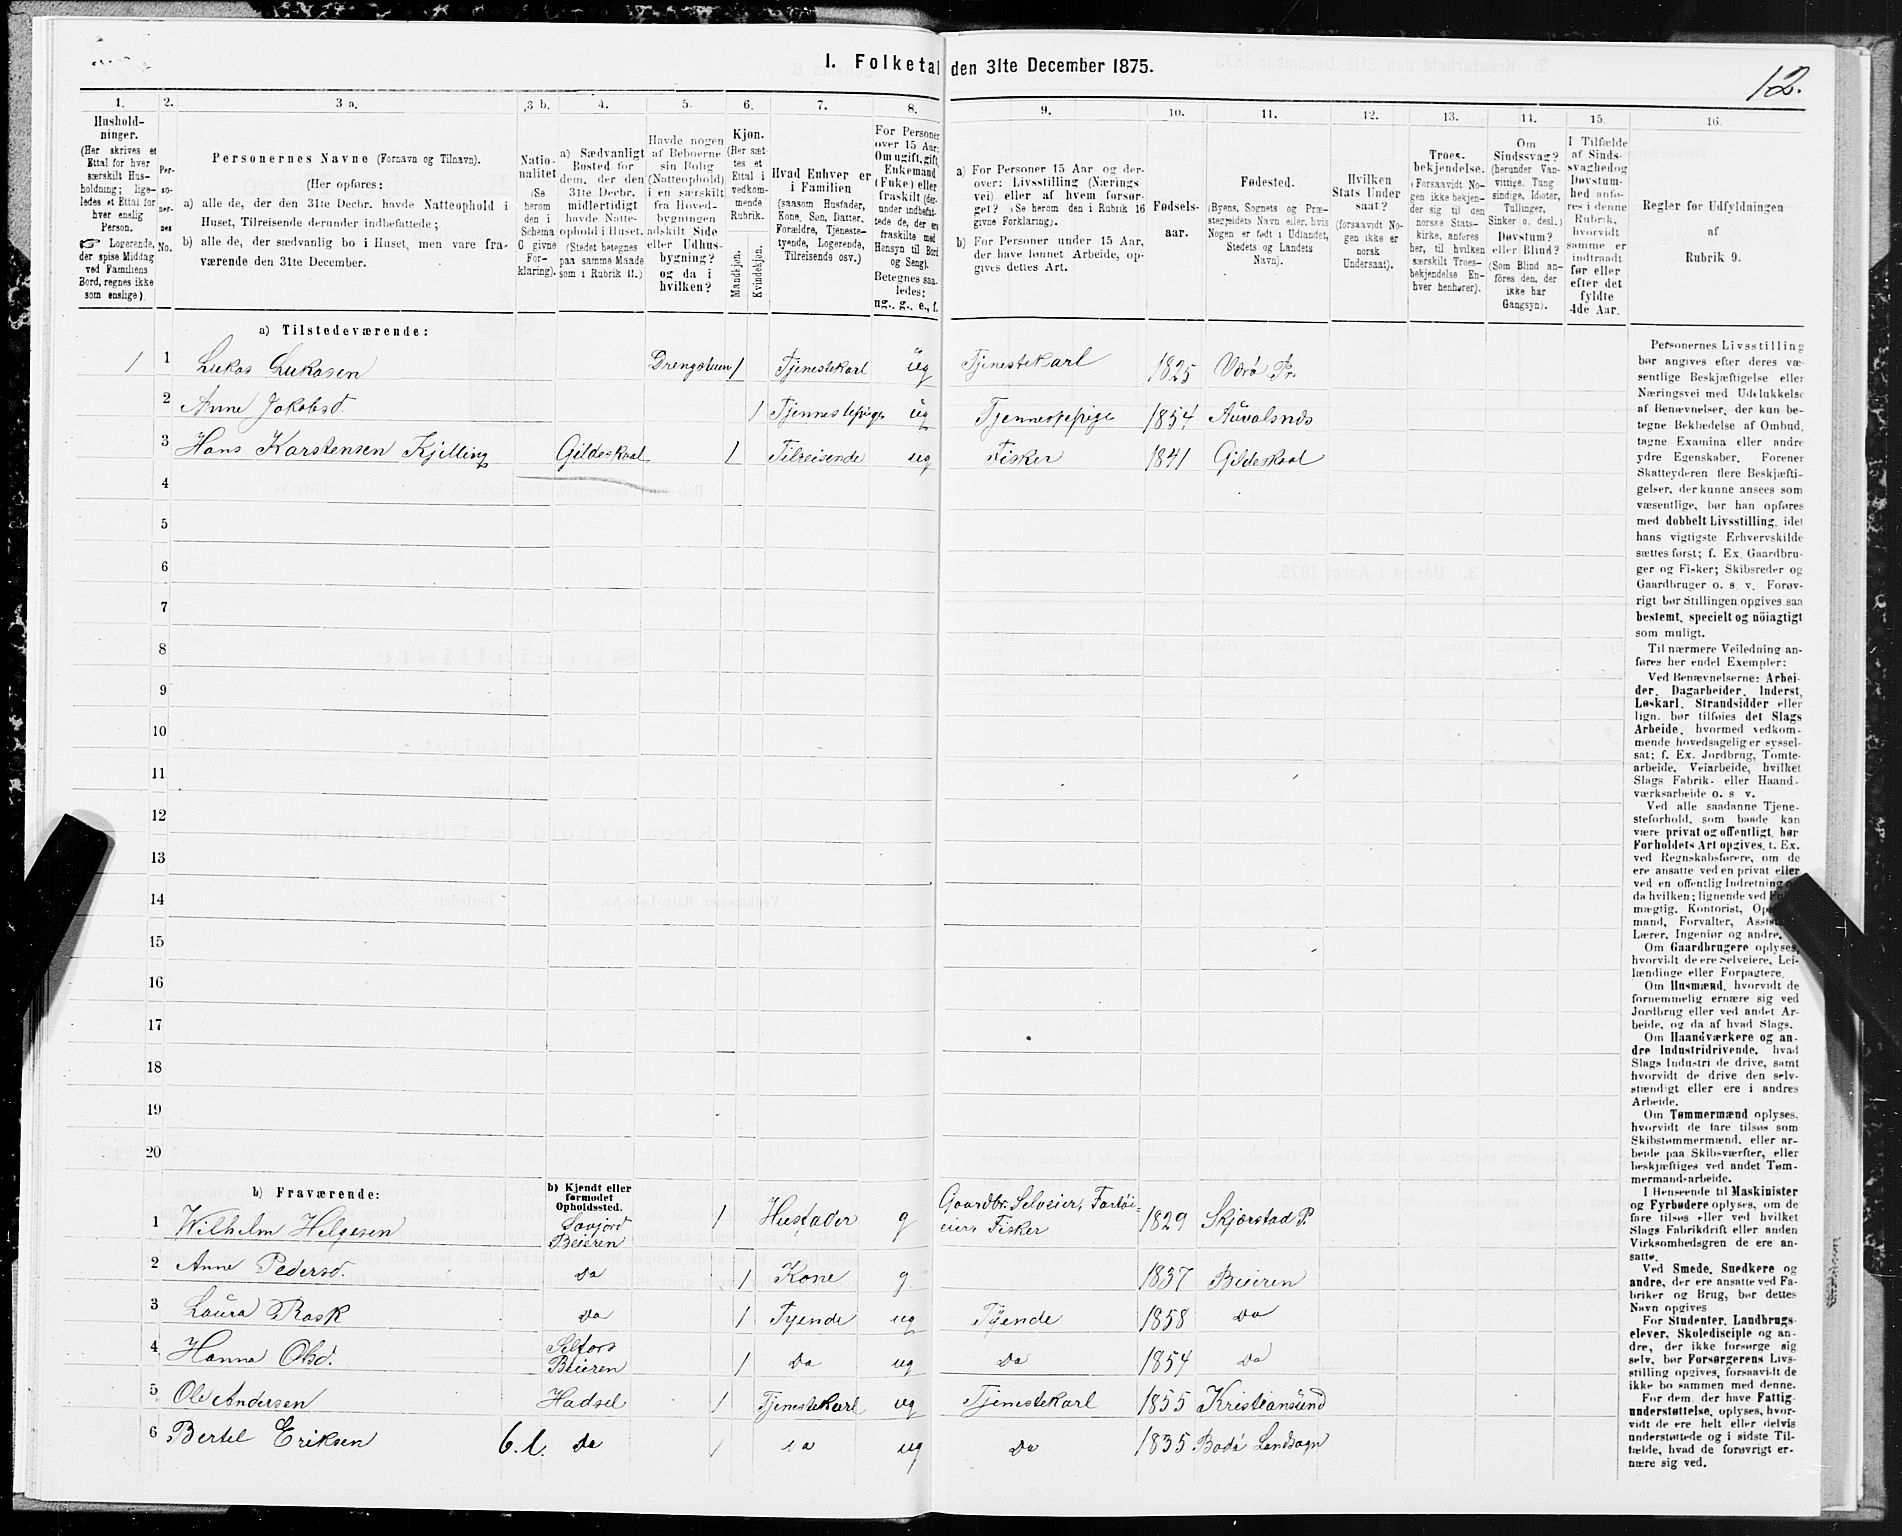 1. Folketal den 31te December 1875.
12.
1. 2. 3 a. 3 b. 4. 5. 6. 7. 8. 9. 10. 11. 12. 13. 14. 15. 16.
Hushold-
ninger.
(Her skrives et
Ettal for hver
særskilt Hus-
holdning; lige-
ledes et Ettal for
hver enslig
Person.
☞ Logerende,
der spise Middag
ved Familiens
Bord, regnes ikke
som enslige).
Per-
so-
ner-
nes
No.
Personernes Navne (Fornavn og Tilnavn).
(Her opføres:
a) alle de, der den 31te Decbr. havde Natteophold i
Huset, Tilreisende derunder indbefattede;
b) alle de, der sædvanlig bo i Huset, men vare fra-
værende den 31te December.
Natio-
nalitet
(Se
herom
den i
Schema
C givne
For-
klaring).
a) Sædvanligt
Bosted for
dem, der den
31te Decbr.
midlertidigt
havde Natte-
ophold i Huset.
(Stedet betegnes
paa samme Maade
som i Rubrik 11.)
Havde nogen
af Beboerne
sin Bolig
(Natteophold)
i en særskilt
fra Hoved-
bygningen
adskilt Side
eller Udhus-
bygning?
og da i
hvilken?
Kjøn.
(Her sæt-
tes et
Ettal i
vedkom-
mende
Rubrik.
Mandkjøn.
Kvindekjøn.
Hvad Enhver er
i Familien
(saasom Husfader,
Kone, Søn, Datter,
Forældre, Tjeneste-
tyende, Logerende,
Tilreisende osv.)
For Personer
over 15 Aar:
Om ugift, gift,
Enkemand
(Enke) eller
fraskilt (der-
under indbefat-
tede de, der ere
fraskilte med
Hensyn til Bord
og Seng).
Betegnes saa-
ledes:
ug., g., e., f.
a) For Personer 15 Aar og der-
over: Livsstilling (Nærings
vei) eller af hvem forsør-
get? (Se herom den i Rubrik 16
givne Forklaring).
b) For Personer under 15 Aar,
der have lønnet Arbeide, op-
gives dettes Art.
Fødsels-
aar.
Fødested.
(Byens, Sognets og Præ-
stegjeldets Navn eller, hvis
Nogen er født i Udlandet,
Stedets og Landets
Navn).
Hvilken
Stats Under
saat?
(forsaavidt No-
gen ikke er
norsk
Undersaat).
Troes-
bekjendelse.
(Forsaavidt No-
gen ikke bekjen-
der sig til den
norske Stats-
kirke, anføres
her, til hvilken
særskilt Troes-
bekjendelse En-
hver henhører).
Om
Sindssvag?
(herunder Van-
vittige, Tung
sindige, Idioter,
Tullinger,
Sinker o. desl.)
Døvstum?
eller Blind?
(Som Blind an-
føres den, der
ikke har
Gangsyn).
I Tilfælde
af Sinds-
svaghed og
Døvstum-
hed anfø-
res i denne
Rubrik,
hvorvidt
samme er
indtraadt
før eller
efter det
fyldte
4de Aar.
Regler for Udfyldningen
af
Rubrik 9.
a) Tilstedeværende:
1 1 Lukas Lukasen Drengstuen 1 Tjenestekarl ug Tjenestekarl 1825 Værø Pr.
2 Anne Jakobsd. 1 Tjennestepige ug Tjennestepige 1854
3 Hans Karstensen Kjelling Gildeskaal 1 Tilreisende ug Fisker 1841 Gildeskaal
4
5
6
7
8
9
10
11
12
13
14
15
16
17
18
19
20
b) Fraværende:
b) Kjendt eller
formodet
Opholdssted.
1 Wilhelm Helgesen Beieren 1 Husfader g Gaardbr. Selveier, Fartøi-
eier Fisker 1829 Skjærstad P.
2 Anne Pedersd. Do 1 Kone g 1837 Beieren
3 Laura Rask Do 1 Tyende ug Tyende 1858 Do
4 Hanna Olsd. Selfors
Beieren 1 Do ug Do 1854 Do
5 Ole Andersen Hadsel 1 Tjenestekarl ug Tjenestekarl 1855 Kristiansund
6 Bertel Eriksen Do 1 Do ug Do 1835 Bodø Landsogn
Personernes Livsstilling
bør angives efter deres væ-
sentlige Beskjæftigelse eller
Næringsvei med Udelukkelse
af Benævnelser, der kun be-
tegne Beklædelse af Ombud,
tagne Examina eller andre
ydre Egenskaber. Forener
Skatteyderen flere Beskjæfti-
gelser, der kunne ansees som
væsentlige, bør han opføres
med dobbelt Livsstilling, idet
hans vigtigste Erhvervskilde
sættes først; f. Ex. Gaardbru-
ger og Fisker; Skibsreder og
Gaardbruger o. s. v. Forøv-
rigt bør Stillingen opgives saa
bestemt, specielt og nöiagtigt
som muligt.
Til nærmere Veiledning an-
føres her endel Exempler:
Ved Benævnelserne: Arbei-
der, Dagarbeider, Inderst,
Løskarl, Strandsidder eller
lign. bør tilføies det Slags
Arbeide, hvormed vedkom-
mende hovedsagelig er syssel-
sat; f. Ex. Jordbrug, Tomte-
arbeide, Veiarbeide, hvilket
Slags Fabrik- eller Haand-
værksarbeide o. s v.
Ved alle saadanne Tjene-
steforhold, som baade kan
være privat og offentligt, bør
Forholdets Art opgives, f. Ex.
ved Regnskabsførere, om de
ere ansatte ved en privat eller
ved en offentlig Indretning
da hvilken; lignende ved
mægtig, Kontorist,
mand, Forvalter,
Lærer, Ingeniør og andre.
Om Gaardbrugere oplyses,
hvorvidt de ere Selveiere, Lei-
lændinge eller Forpagtere.
Om Husmænd, hvorvidt de
fornemmelig ernære sig ved
Jordbrug eller ved andet Ar-
beide, og da af hvad Slags.
Om Haandværkere og an-
dre Industridrivende, hvad
Slags Industri de drive, samt
hvorvidt de drive den selv-
stændigt eller ere i andres
Arbeide.
Om Tømmermænd oplyses,
hvorvidt de fare tilsøs som
Skibstømmermænd, eller ar-
beide paa Skibsværfter, eller
beskjæftiges ved andet Tøm-
mermandsarbeide.
I Henseende til Maskinister
og Fyrbødere oplyses, om de
fare tilsøs eller ved hvilket
Slags Fabrikdrift eller anden
Virksomhedsgren de ere an-
satte.
Ved Smede, Snedkere og
andre, der ere ansatte ved Fa-
briker og Brug, bør dettes
Navn opgives
For Studenter, Landbrugs-
elever, Skoledisciple og an-
dre, der ikke forsørge sig
selv, bør Forsørgerens Livs-
stilling opgives, forsaavidt de
ikke bo sammen med denne.
For dem, der have Fattig-
understøttelse, oplyses, hvor-
vidt de ere helt eller delvis
understøttede og i sidste Til-
fælde, hvad de forøvrigt er-
nære sig ved.